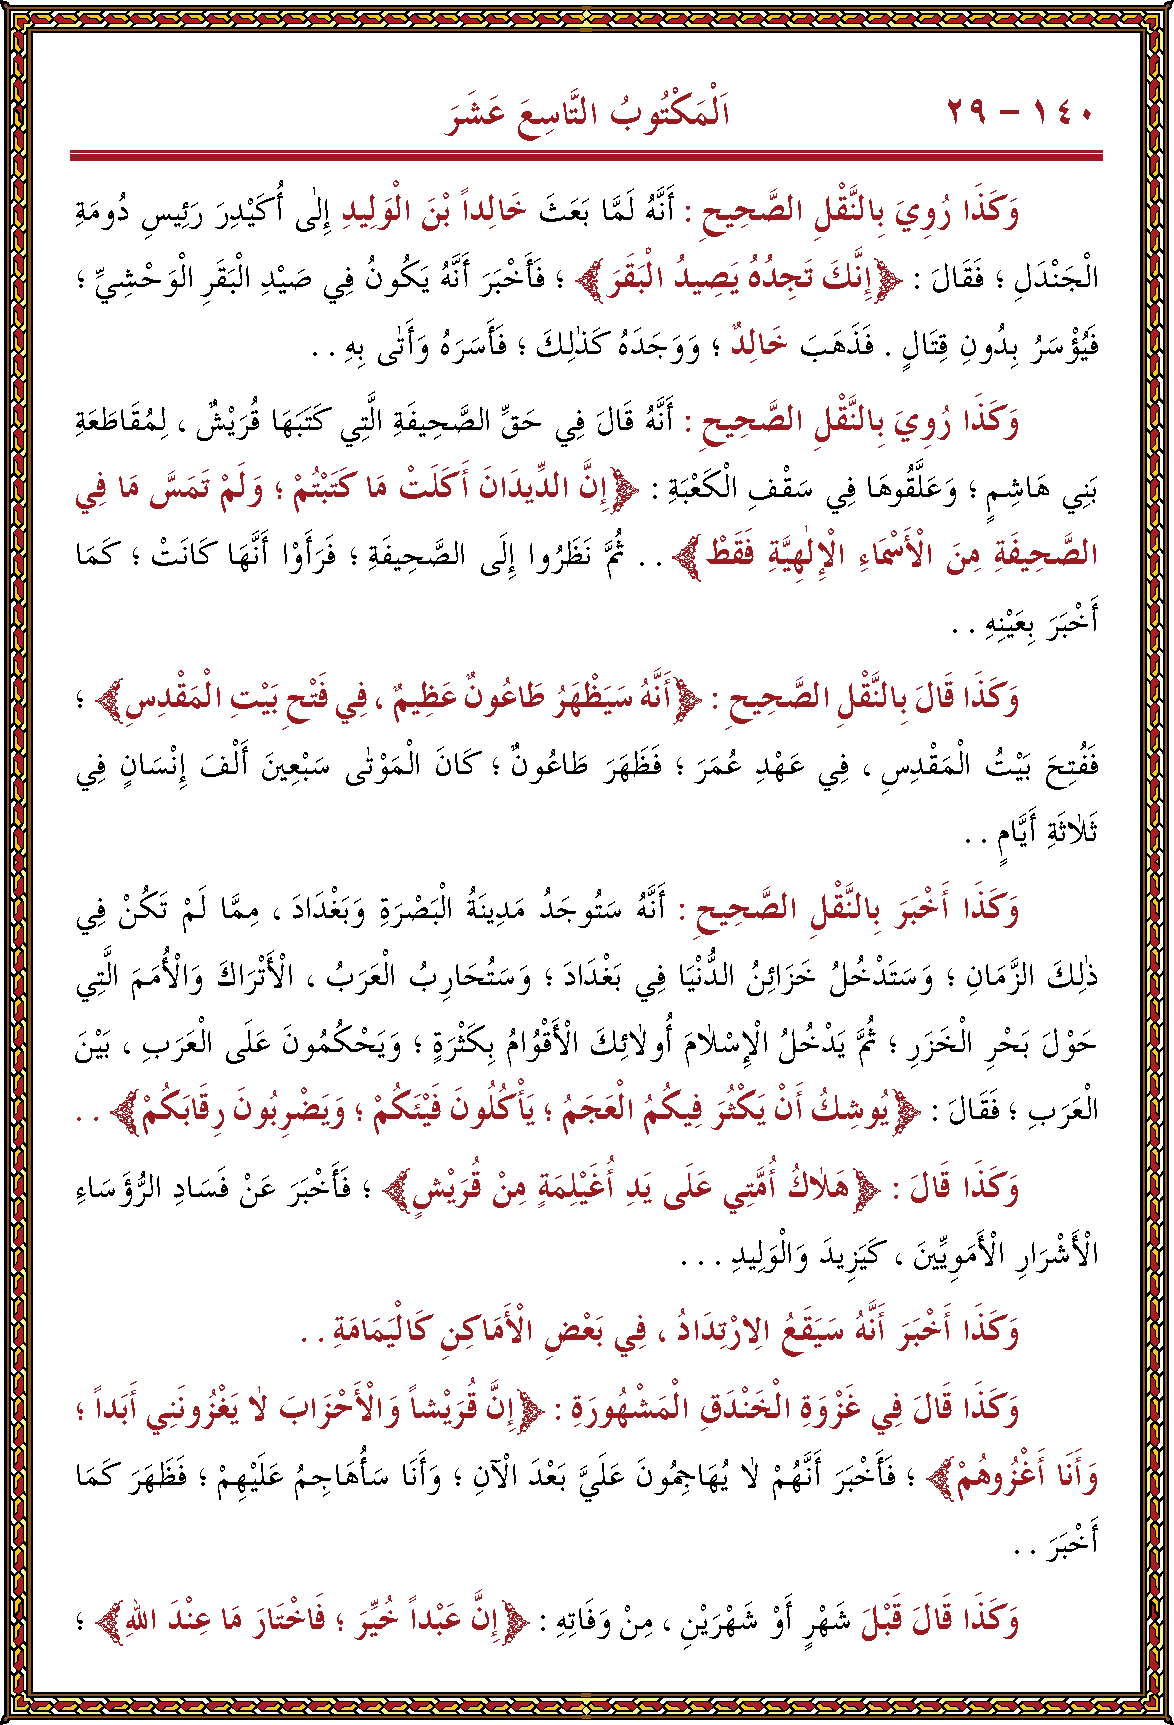 ١٤٠ - ٢٩ اَلْمَكْتُوبُ التَّاسِعَ عَشَرَ
وَكَذَا رُوِيَ بِالنَّقْلِ الصَّحِيحِ : أَنَّهُ لَمَّا بَعَثَ خَالِداً بْنَ الْوَلِيدِ إِلٰى أُكَيْدِرَ رَئِيسِ دُومَةِ
الْجَنْدَلِ ؛ فَقَالَ : ﴿إِنَّكَ تَجِدُهُ يَصِيدُ الْبَقَرَ﴾ ؛ فَأَخْبَرَ أَنَّهُ يَكُونُ فِي صَيْدِ الْبَقَرِ الْوَحْشِيِّ ؛
فَيُؤْسَرُ بِدُونِ قِتَالٍ . فَذَهَبَ خَالِدٌ ؛ وَوَجَدَهُ كَذٰلِكَ ؛ فَأَسَرَهُ وَأَتٰى بِهِ . .
وَكَذَا رُوِيَ بِالنَّقْلِ الصَّحِيحِ : أَنَّهُ قَالَ فِي حَقِّ الصَّحِيفَةِ الَّتِي كَتَبَهَا قُرَيْشٌ ، لِمُقَاطَعَةِ
بَنِي هَاشِمٍ ؛ وَعَلَّقُوهَا فِي سَقْفِ الْكَعْبَةِ : ﴿إِنَّ الدِّيدَانَ أَكَلَتْ مَا كَتَبْتُمْ ؛ وَلَمْ تَمَسَّ مَا فِي
الصَّحِيفَةِ مِنَ الْأَسْمَاءِ الْإِلٰهِيَّةِ فَقَطْ﴾ . . ثُمَّ نَظَرُوا إِلَى الصَّحِيفَةِ ؛ فَرَأَوْا أَنَّهَا كَانَتْ ؛ كَمَا
أَخْبَرَ بِعَيْنِهِ . .
وَكَذَا قَالَ بِالنَّقْلِ الصَّحِيحِ : ﴿أَنَّهُ سَيَظْهَرُ طَاعُونٌ عَظِيمٌ ، فِي فَتْحِ بَيْتِ الْمَقْدِسِ﴾ ؛
فَفُتِحَ بَيْتُ الْمَقْدِسِ ، فِي عَهْدِ عُمَرَ ؛ فَظَهَرَ طَاعُونٌ ؛ كَانَ الْمَوْتٰى سَبْعِينَ أَلْفَ إِنْسَانٍ فِي
ثَلٰاثَةِ أَيَّامٍ . .
وَكَذَا أَخْبَرَ بِالنَّقْلِ الصَّحِيحِ : أَنَّهُ سَتُوجَدُ مَدِينَةُ الْبَصْرَةِ وَبَغْدَادَ ، مِمَّا لَمْ تَكُنْ فِي
ذٰلِكَ الزَّمَانِ ؛ وَسَتَدْخُلُ خَزَائِنُ الدُّنْيَا فِي بَغْدَادَ ؛ وَسَتُحَارِبُ الْعَرَبُ ، الْأَتْرَاكَ وَالْأُمَمَ الَّتِي
حَوْلَ بَحْرِ الْخَزَرِ ؛ ثُمَّ يَدْخُلُ الْإِسْلٰامَ أُولٰائِكَ الْأَقْوَامُ بِكَثْرَةٍ ؛ وَيَحْكُمُونَ عَلَى الْعَرَبِ ، بَيْنَ
الْعَرَبِ ؛ فَقَالَ : ﴿يُوشِكُ أَنْ يَكْثُرَ فِيكُمُ الْعَجَمُ ؛ يَأْكُلُونَ فَيْئَكُمْ ؛ وَيَضْرِبُونَ رِقَابَكُمْ﴾ . .
وَكَذَا قَالَ : ﴿هَلٰاكُ أُمَّتِي عَلَى يَدِ أُغَيْلِمَةٍ مِنْ قُرَيْشٍ﴾ ؛ فَأَخْبَرَ عَنْ فَسَادِ الرُّؤَسَاءِ
الْأَشْرَارِ الْأَمَوِيِّينَ ، كَيَزِيدَ وَالْوَلِيدِ . . .
وَكَذَا أَخْبَرَ أَنَّهُ سَيَقَعُ الِارْتِدَادُ ، فِي بَعْضِ الْأَمَاكِنِ كَالْيَمَامَةِ . .
وَكَذَا قَالَ فِي غَزْوَةِ الْخَنْدَقِ الْمَشْهُورَةِ : ﴿إِنَّ قُرَيْشاً وَالْأَحْزَابَ لٰا يَغْزُونَنِي أَبَداً ؛
وَأَنَا أَغْزُوهُمْ﴾ ؛ فَأَخْبَرَ أَنَّهُمْ لٰا يُهَاجِمُونَ عَلَيَّ بَعْدَ الْآنِ ؛ وَأَنَا سَأُهَاجِمُ عَلَيْهِمْ ؛ فَظَهَرَ كَمَا
أَخْبَرَ . .
وَكَذَا قَالَ قَبْلَ شَهْرٍ أَوْ شَهْرَيْنِ ، مِنْ وَفَاتِهِ : ﴿إِنَّ عَبْداً خُيِّرَ ؛ فَاخْتَارَ مَا عِنْدَ اللهِ﴾ ؛